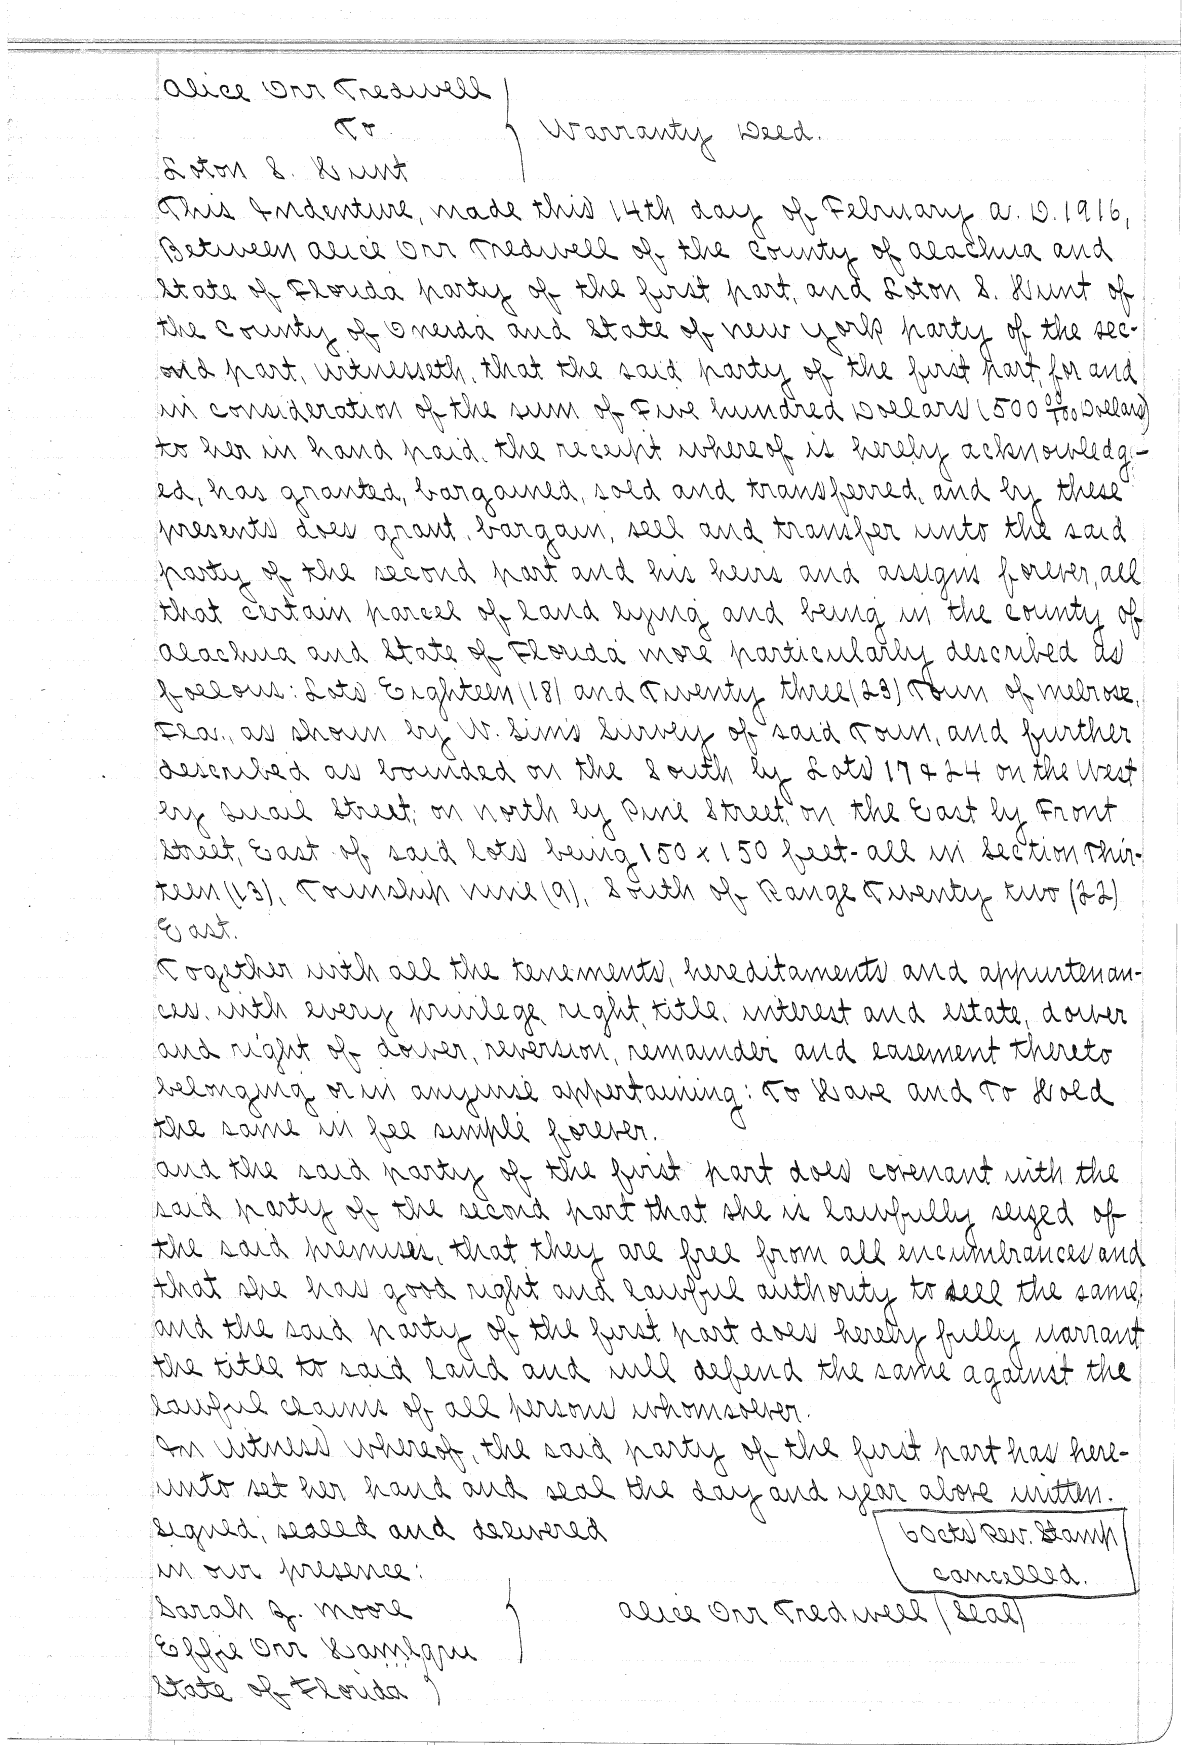 Alice Orr Tredwell
To
Warranty Deed.
Loton S. Hunt
This Indenture, made this 14th day of February A. D. 1916,
Between Alice Orr Tredwell of the County of Alachua and
State of Florida party of the first part, and Loton S. Hunt of
the County of Oneida and State of New York party of the sec-
ond part, witnesseth, that the said party of the first part, for and
in consideration of the sum of Five hundred Dollars (500 00/100 Dollars)
to her in hand paid, the receipt whereof is hereby acknowledg-
ed, has granted, bargained, sold and transferred, and by these
presents does grant, bargain, sell and transfer unto the said
party of the second part and his heirs and assigns forever, all
that certain parcel of land lying and being in the County of
Alachua and State of Florida more particularly described as
follows: Lots Eighteen (18) and Twenty three (23) Town of Melrose,
Fla., as shown by W. Sims Survey of said Town, and further
described as bounded on the South by Lots 17 & 24 on the West
by Quail Street, on north by Pine Street, on the East by Front
Street, East of said lots being 150 x 150 feet - all in Section Thir-
teen (13), Township nine (9), South of Range Twenty two (22)
East.
Together with all the tenements, hereditaments and appurtenan-
ces, with every privilege, right, title, interest and estate, dower
and right of dower, reversion, remainder and easement thereto
belonging or in anywise appertaining: To Have and To Hold
the same in fee simple forever.
And the said party of the first part does covenant with the
said party of the second part that she is lawfully seized of
the said premises, that they are free from all encumbrances and
that she has good right and lawful authority to sell the same,
and the said party of the first part does hereby fully warrant
the title to said land and will defend the same against the
lawful claims of all persons whomsoever.
In witness whereof, the said party of the first part has here-
unto set her hand and seal the day and year above written.
Signed, sealed and delivered
60cts Rev. Stamp
in our presence:
cancelled.
Sarah J. Moore
Alice Orr Tredwell (Seal)
Effie Orr
State of Florida )